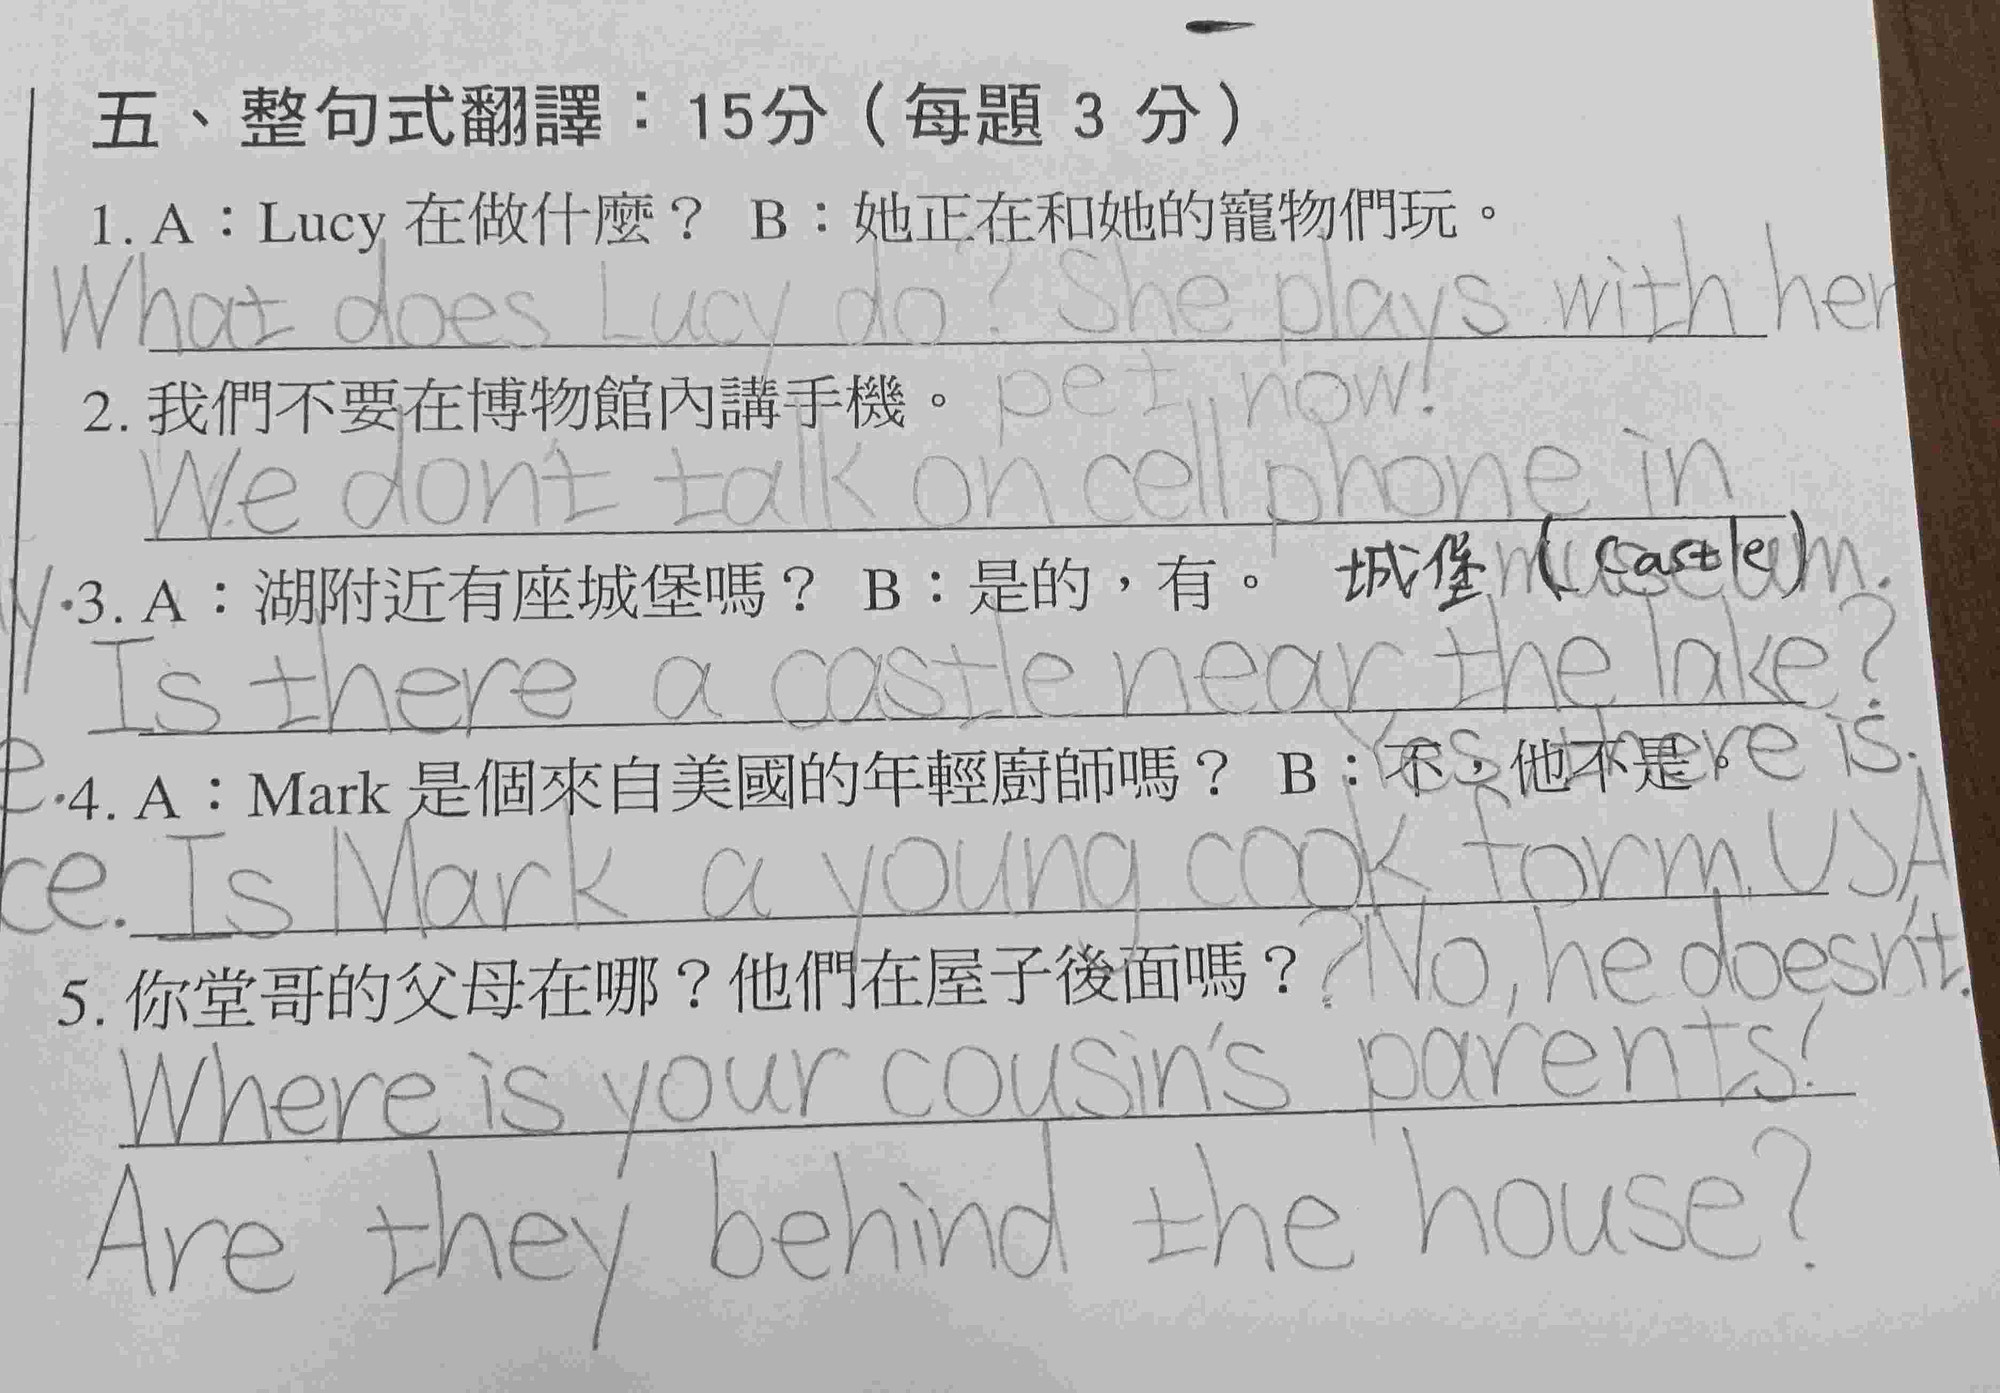 五、整句式翻譯：15分（每題 3 分）
1. A：Lucy 在做什麼？ B：她正在和她的寵物們玩。
What does Lucy do? She plays with her
pet now!
2. 我們不要在博物館內講手機。
We don't talk on cell phone in
museum.
3. A：湖附近有座城堡嗎？ B：是的，有。 城堡 (castle)
Is there a castle near the lake?
Yes there is.
4. A：Mark 是個來自美國的年輕廚師嗎？ B：不，他不是。
ce. Is Mark a young cook form USA
? No, he doesn't.
5. 你堂哥的父母在哪？他們在屋子後面嗎？
Where is your cousin's parents!
Are they behind the house?